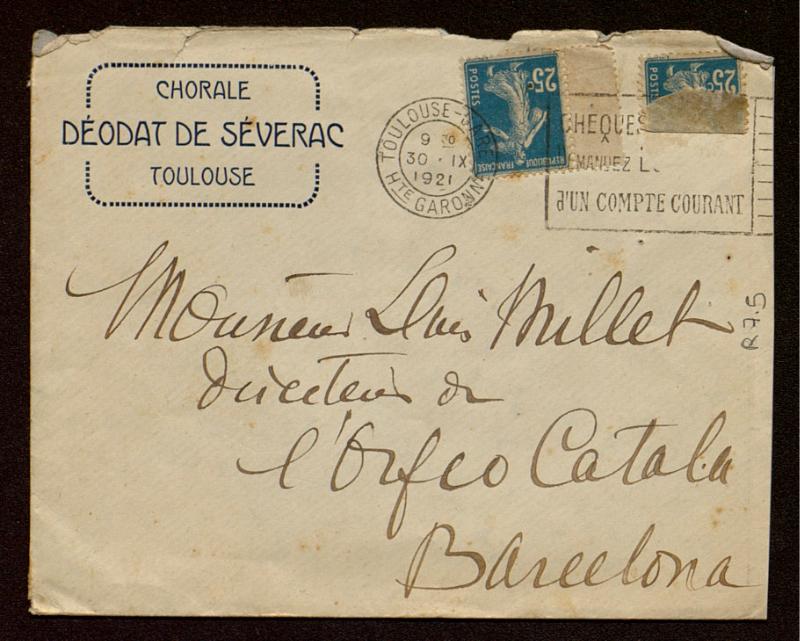 CHORALE
DÉODAT DE SÉVERAC
TOULOUSE
TOULOUSE-GARE
9 30
30 · IX
1921
HTE GARONNE
25c
POSTES
REPUBLIQUE FRANÇAISE
25c
POSTES
CHEQUES
X
d'UN COMPTE COURANT
Monsieur Lluis Millet
Directeur de
l'Orfeo Catala
Barcelona
R 7.5